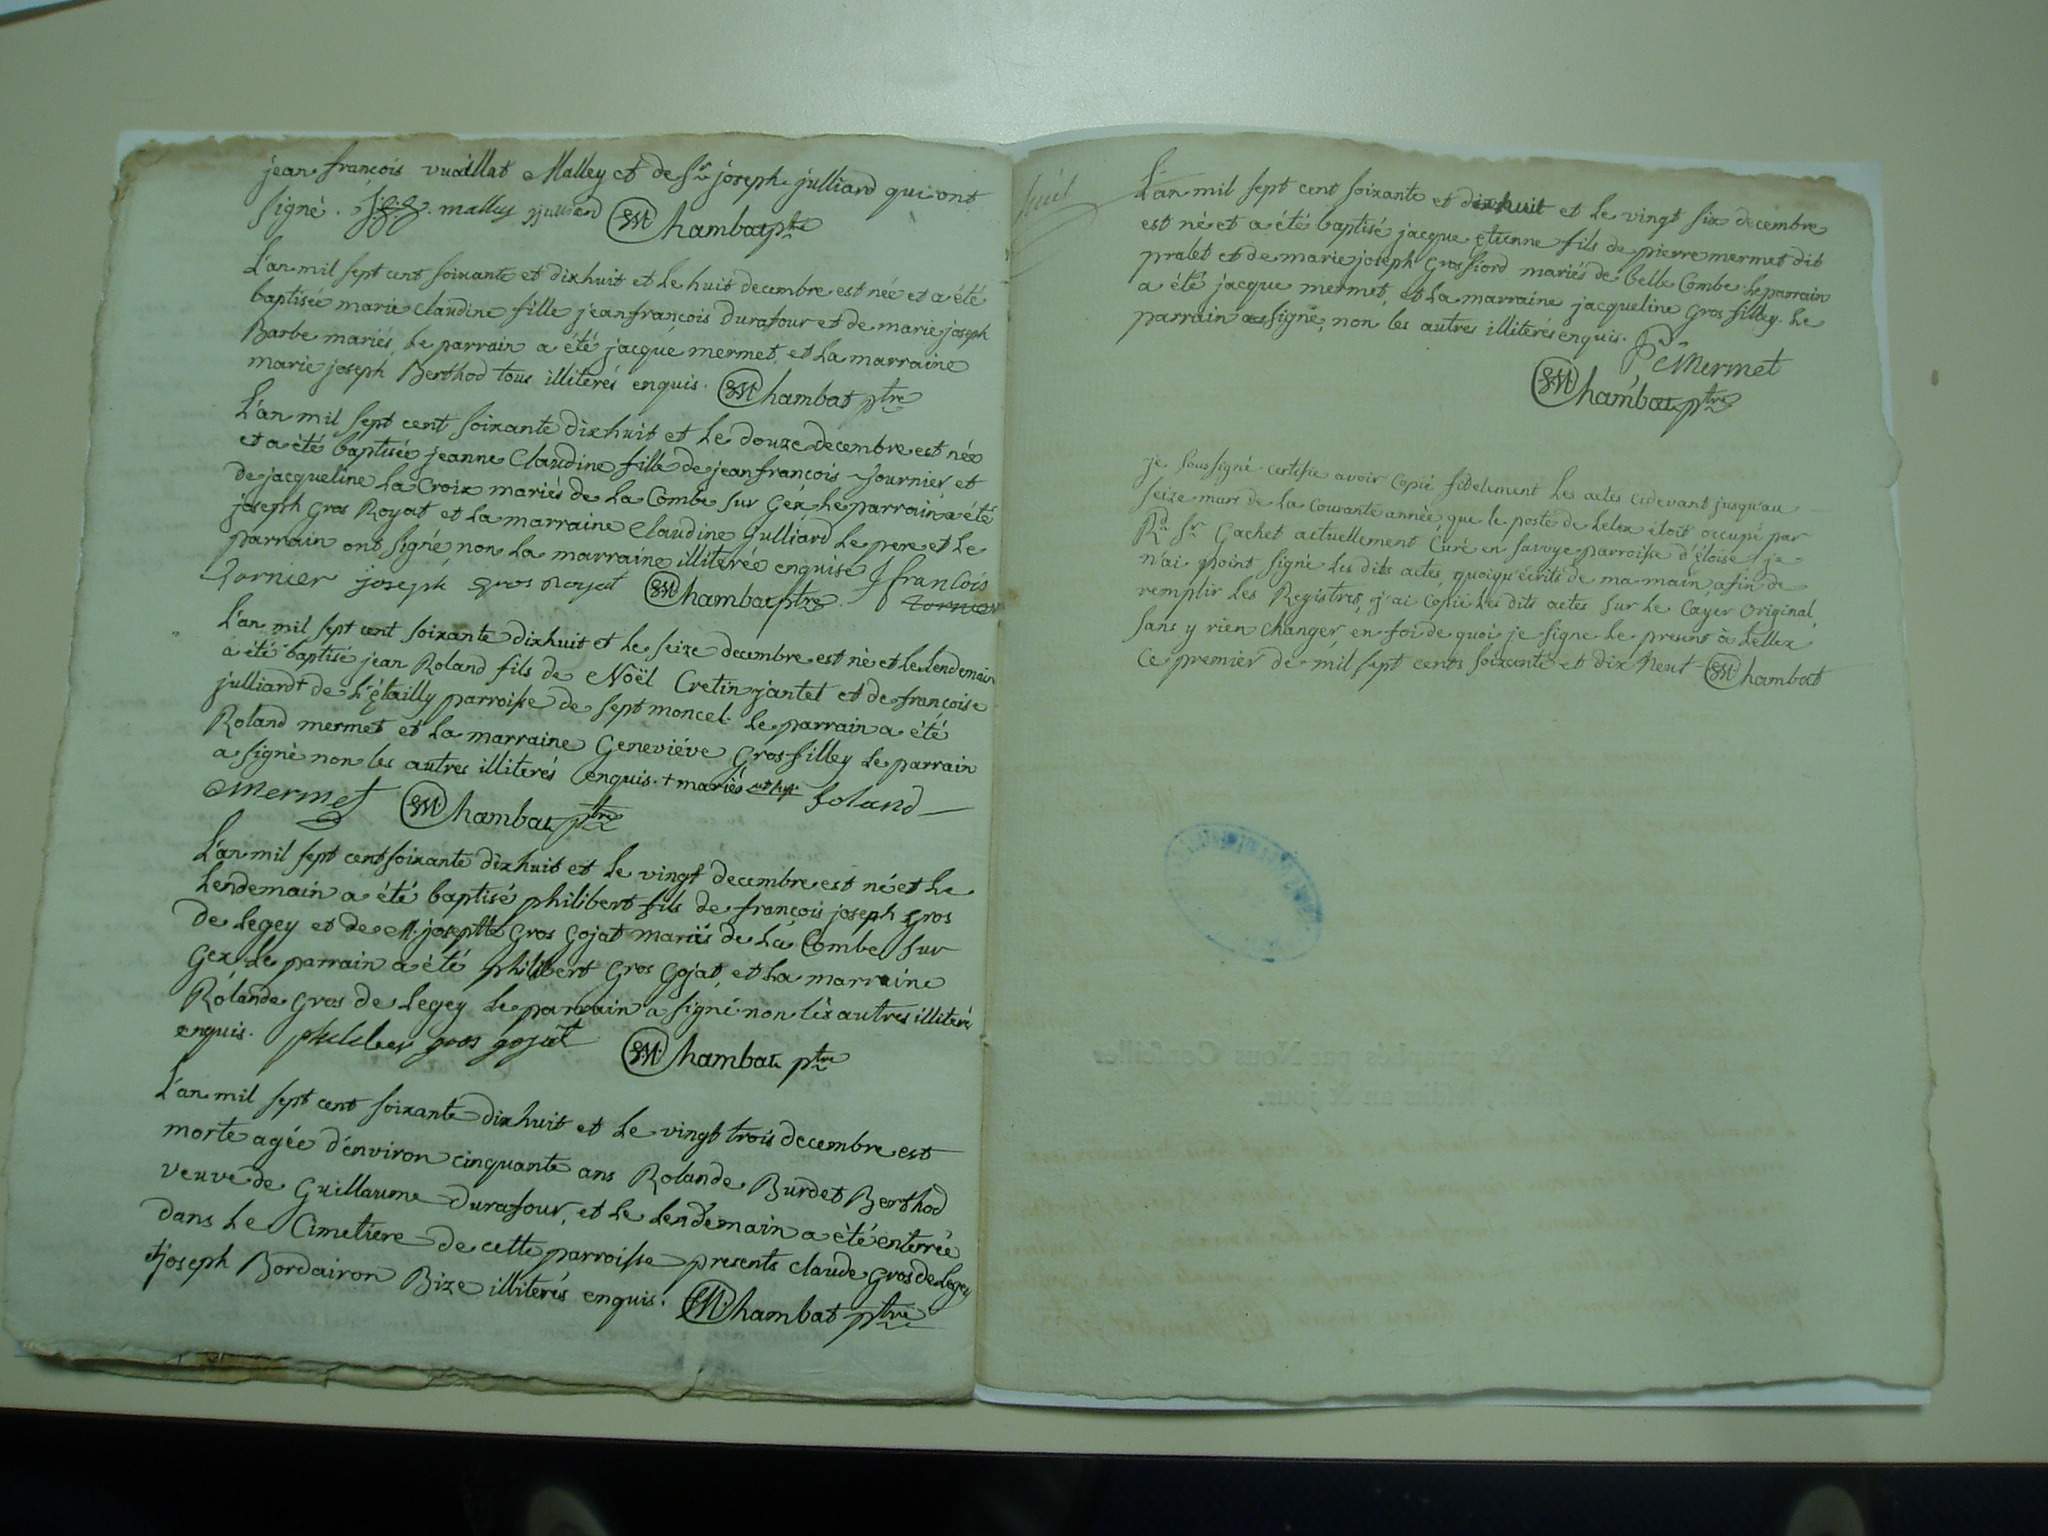 jean françois vuaillat Malley et de Sr joseph julliard qui ont
signé. malley julliard Chambat ptre
L'an mil sept cent soixante et dixhuit et le huit decembre est née et a été
baptisée marie claudine fille jean françois Durafour et de marie joseph
Barbe mariés, le parrain a été jacque mermet, et la marraine
marie joseph Berthod tous illiterés enquis. Chambat ptre
L'an mil sept cent soixante dixhuit et le douze decembre est née
et a été baptisée jeanne Claudine fille de jean françois journier et
de jacqueline la Croix mariés de la Combe sur Géx le parrain a été
joseph Gros Royat et la marraine Claudine julliard le pere et le
parrain ont signé non la marraine illiterée enquise J francois
joseph gros Chambat ptre
L'an mil sept cent soixante dixhuit et le seize decembre est né et le lendemain
a été baptisé jean Roland fils de Noël Cretin jantet et de françoise
julliard+ de l'étailly parroisse de septmoncel. le parrain a été
Roland mermet et la marraine Geneviéve Grosfilley le parrain
a signé non les autres illiterés enquis. + mariés Roland
mermet Chambat ptre
L'an mil sept cent soixante dixhuit et le vingt decembre est né et le
lendemain a été baptisé philibert fils de françois joseph gros
de Legey et de M. josephte Gros Gojat mariés de la Combe sur
Gex le parrain a été philibert Gros Gojat, et la marraine
Rolande Gros de Legey le parrain a signé non les autres illiterés
enquis. philiber gros gojat Chambat ptre
L'an mil sept cent soixante dixhuit et le vingt trois decembre est
morte agée d'environ cinquante ans Rolande Burdet Berthod
veuve de Guillaume Durafour, et le lendemain a été enterrée
dans le Cimetiere de cette parroisse presents claude Gros de Legey
joseph Bordairon Bize illiterés enquis. Chambat ptre
L'an mil sept cent soixante et dixhuit et le vingt six decembre
est né et a été baptisé jacque etienne fils de pierre mermet dit
pralet et de marie joseph Grosfiord mariés de belle Combe. le parrain
a été jacque mermet, et la marraine jacqueline Grosfilley. Le
parrain a signé, non les autres illiterés enquis.
Mermet
Chambat ptre
je soussigné certifie avoir Copié fidelement les actes cidevant jusqu'au
seize mars de la Courante année que le poste de Lelex étoit occupé par
Rd Sr Gachet actuellement Curé en Savoye parroisse d'éloise, je
n'ai point signé les dits actes, quoiqu'écrits de ma main, afin de
remplir les Registres, j'ai Copié les dits actes sur le Cayer original,
sans y rien Changer, en foi de quoi je signe le present à Lellex
Ce premier de mil sept cents soixante et dix neuf Chambat